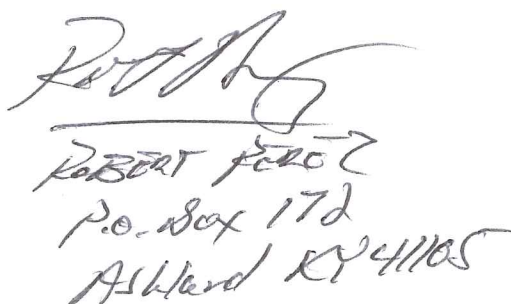 ROBERT PEREZ
P.O. Box 172
Ashland KY 41105